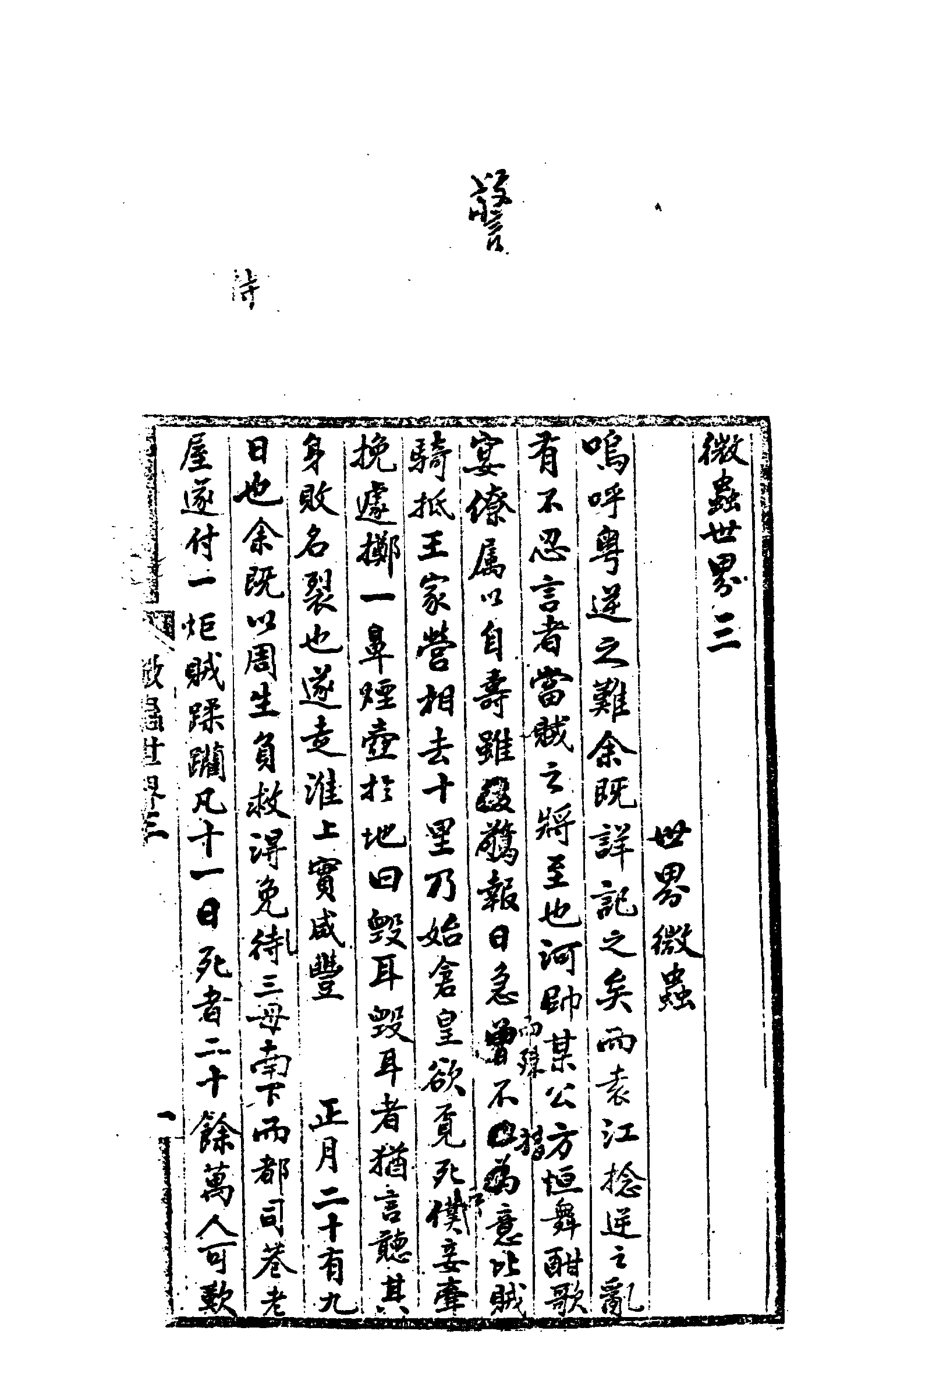 警
詩
微蟲世界三
世界微蟲
嗚呼粤逆之難余既詳記之矣而袁江捻逆之亂
有不忍言者當賊之將至也河帥某公方恒舞酣歌
宴僚属以自壽雖警報日急曾不為意比賊
而
騎抵王家營相去十里乃始倉皇欲覓死僕妾牽
挽遽擲一鼻煙壺於地曰毀耳毀耳者猶言聽其
身敗名裂也遂走淮上實咸豐 正月二十有九
日也余既以周生負救得免待三母南下而都司巷老
屋遂付一炬賊蹂躪凡十一日死者二十餘萬人可歎
微蟲世界三
一